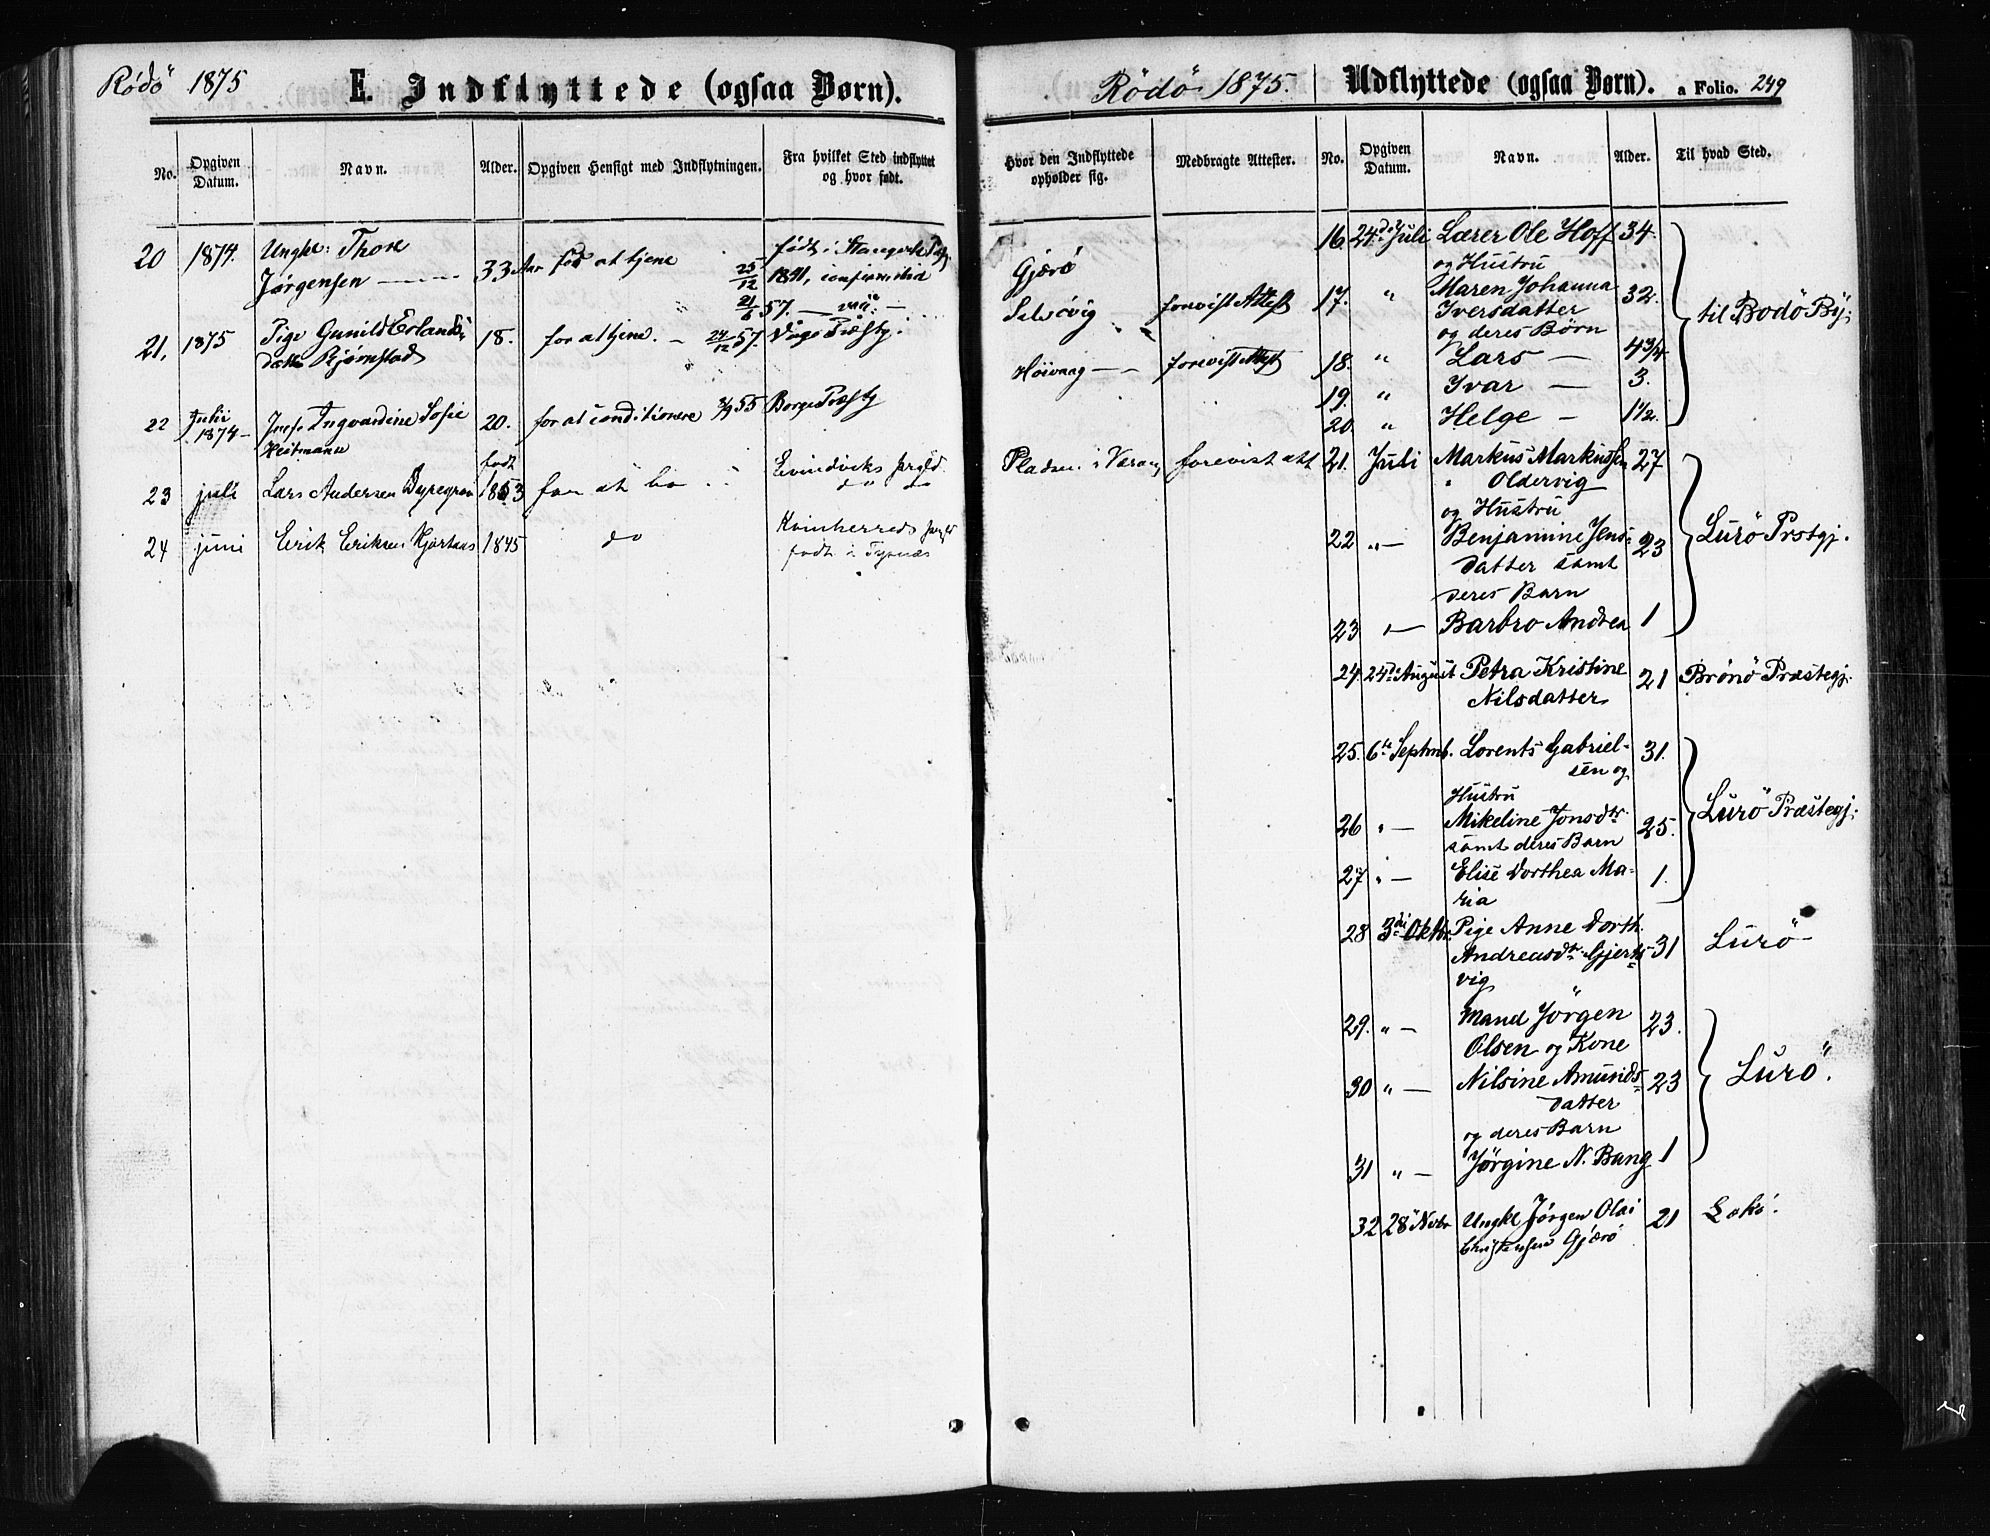 Rödö 1875
E. Indflyttede (ogsaa Børn).
No.
Opgiven Datum.
Navn.
Alder.
Opgiven Hensigt med Indflytningen.
Fra hvilket Sted indflyttet og hvor født.
20 1874. Ungkl: Thore
Jørgensen — 33 Aar for at tjene
født i
25/12 1841, confirmered
21/6 57.
21, 1875 Pige Gunild Erlands-
datter Bjørnstad 18. for at tjene. — 24/12 57. Vaage Præstg.
22 Julii 1874 — Jmf. Ingvardine Sofie
Heitmann 20. for at conditionere 3/9 55 Borge Præstg
23 juli Lars Andersen Dyregrov født 1853 for at bo Evindviks prgld.
do do
24 juni Erik Eriksen Hjortaas 1845 do Kvinherreds prgld
født i Tysnæs
Rödö 1875.
Udflyttede (ogsaa Børn). a Folio. 249
Hvor den Indflyttede opholder sig.
Medbragte Attester.
No.
Opgiven Datum.
Navn.
Alder.
Til hvad Sted.
Gjærö
Selsövig forevist Attest
Höivaag — forevist Attest
Pladsen i Værang forevist att
16 24de Juli Lærer Ole Hoff 34.
og Hustru
17. " Maren Johanna 32.
Iversdatter
og deres Börn
til Bodö By;
18. " Lars — 4 3/4
19. " Ivar — 3.
20. " Helge — 1 1/2.
21. Juli Markus Markussen 27
" Oldervig
og Hustru
22 " — Benjamine Jens- 23
datter samt
deres Barn
Lurö Prstgj.
23 " — Barbro Andrea 1
24 24de August Petra Kristine 21 Brönö Præstegj.
Nilsdatter
25. 6te Septmb. Lorents Gabriel- 31.
sen og
Hustru
26 " — Mikeline Jonsdtr 25.
samt deres Barn
Lurö Præstegj;
27 " — Elise Dorthea Ma- 1.
ria
28 3die Oktbr. Pige Anne Dorth.
Andreasdtr Gjerts- 31 Lurö
vig
29. " — Mand Jörgen 23.
Olsen og Kone
30 " — Nilsine Amunds- 23
datter
og deres Barn
Lurö.
31 " — Jörgine N. Bang 1
32 28 Novbr Ungkl Jørgen Olai 21
Christensen Gjærö